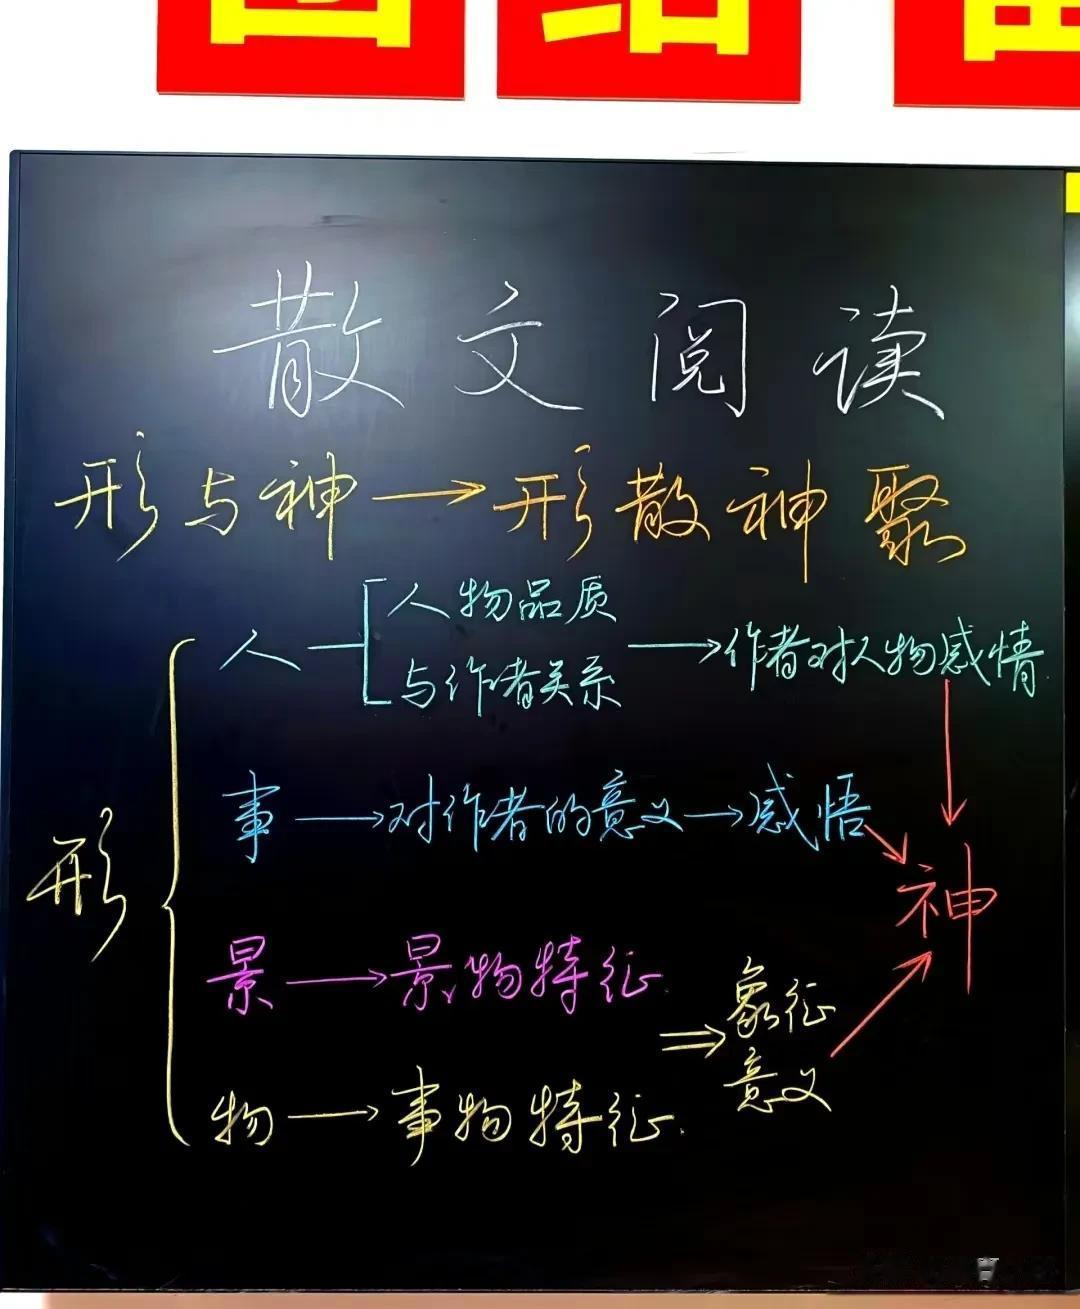 团结
散文阅读
形与神→形散神聚
形
人
人物品质
与作者关系
→作者对人物感情
事→对作者的意义→感悟
神
景→景物特征
物→事物特征
⇒象征
意义